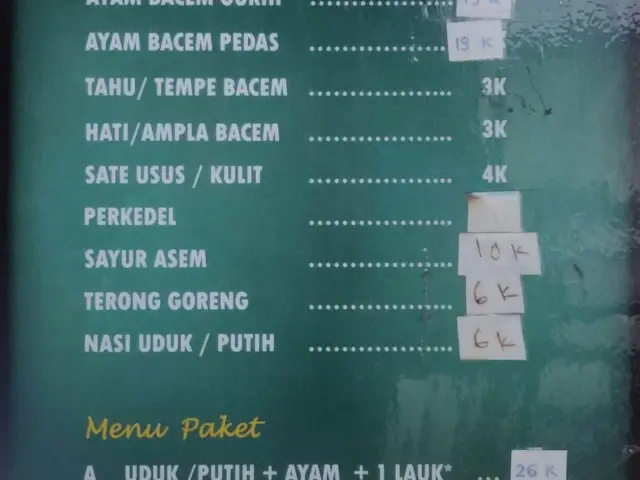 AYAM BACEM GURIH .................... 19 K
AYAM BACEM PEDAS .................... 19 K
TAHU/ TEMPE BACEM .................... 3K
HATI/AMPLA BACEM .................... 3K
SATE USUS / KULIT .................... 4K
PERKEDEL ....................
SAYUR ASEM .................... 10 K
TERONG GORENG .................... 6 K
NASI UDUK / PUTIH .................... 6 K
Menu Paket
A UDUK /PUTIH + AYAM + 1 LAUK* ... 26 K